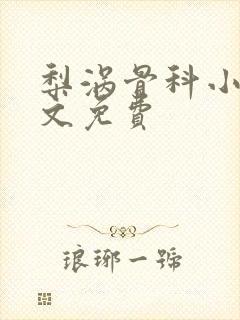 梨涡骨科小
文免費
琅琊一號